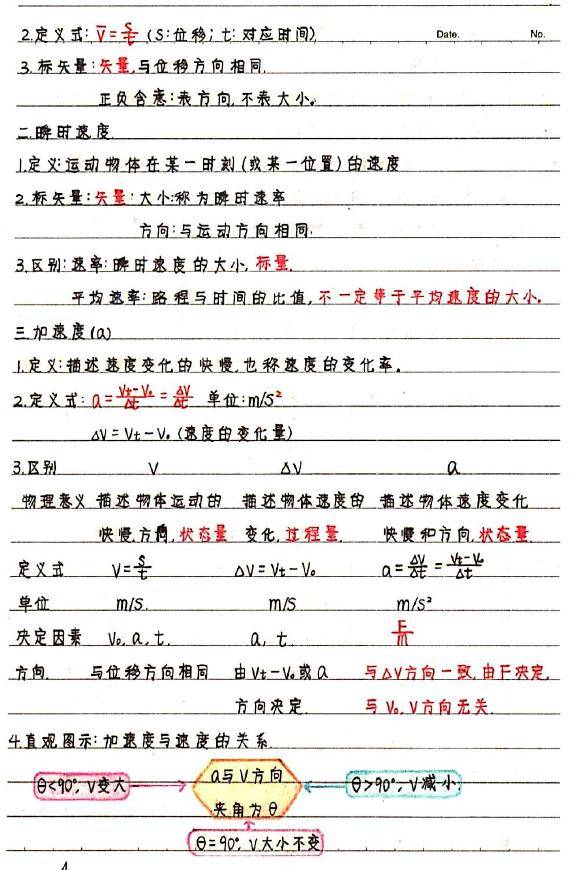 Date. No.
2.定义式: V̅=S/t (S:位移; t:对应时间)
3.标矢量:矢量,与位移方向相同.
正负含意:表方向,不表大小。
二.瞬时速度.
1.定义:运动物体在某一时刻(或某一位置)的速度
2.标矢量:矢量:大小:称为瞬时速率
方向:与运动方向相同.
3.区别:速率:瞬时速度的大小,标量.
平均速率:路程与时间的比值,不一定等于平均速度的大小。
三.加速度(a)
1.定义:描述速度变化的快慢,也称速度的变化率。
2.定义式: a=(Vt-V₀)/Δt=ΔV/Δt 单位:m/s²
ΔV=Vt-V₀(速度的变化量)
3.区别 V ΔV a
物理意义 描述物体运动的 描述物体速度的 描述物体速度变化
快慢.方向,状态量 变化,过程量. 快慢和方向,状态量
定义式 V=S/t ΔV=Vt-V₀ a=ΔV/Δt=(Vt-V₀)/Δt
单位 m/s. m/s m/s²
决定因素 V₀,a,t. a,t. F/m
方向. 与位移方向相同 由Vt-V₀或a 与ΔV方向一致,由F决定,
方向决定. 与V₀,V方向无关.
4.直观图示:加速度与速度的关系.
θ<90°,V变大 a与V方向 θ>90°,V减小.
夹角为θ
θ=90°,V大小不变